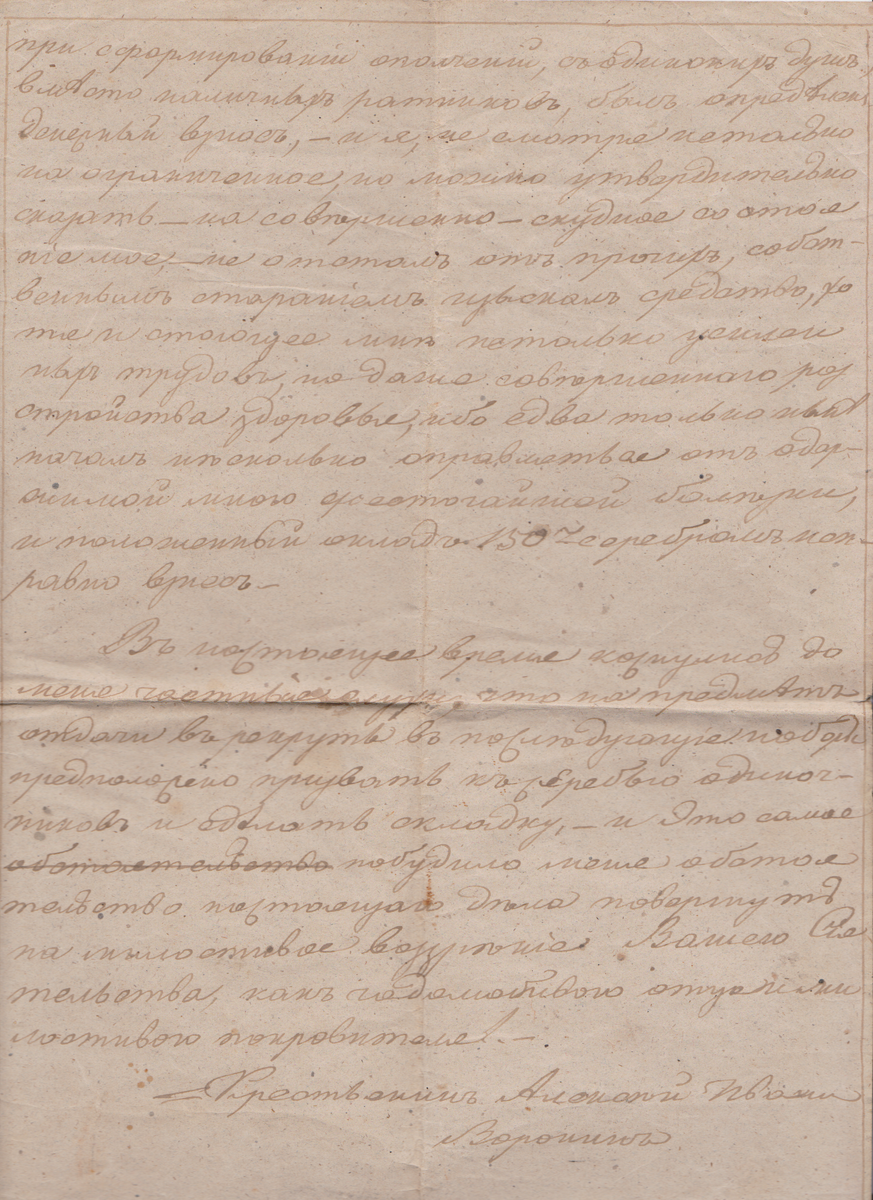 при сформированіи ополченій, съ одинокихъ душъ,
вмѣсто наличныхъ ратниковъ, былъ опредѣлен
денежный взносъ, — и я, не смотре нетолько
на ограниченное, но можно утвердительно
сказать — на совершенно — скудное состоя
ніе мое, — не отсталъ отъ прочихъ, собст-
веннымъ стараніемъ изъискалъ средство, хо
тя и стоющее мнѣ нетолько усилен
ныхъ трудовъ, но даже совершеннаго роз
стройства здоровья, ибо едва только нынѣ
началъ нѣсколько оправлятьве отъ одер-
жимой мною жесточайшей болѣзни,
и положенный окладъ 150 серебромъ исп-
равно внесъ —
Въ настоящее время коснулись до
меня частные слухи, что на предметъ
отдачи въ рекруты въ послѣдующіе наборы
предположено призвать къ жеребью одиноч-
никовъ и сдѣлать складку, — и это самое
обстоятельство побудило меня обстоя
тельство настоящаго дѣла повергнуть
на милостивое воззрѣніе Вашего Сія
тельства, какъ чадолюбиваго отца и ми
лостиваго покровителя! —
Крестьянинъ Алексѣй Ивано
Воронинъ